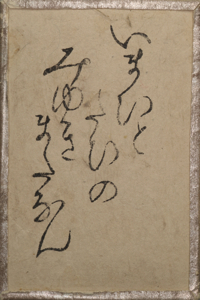 いまひと
たひの
みゆき
またなん